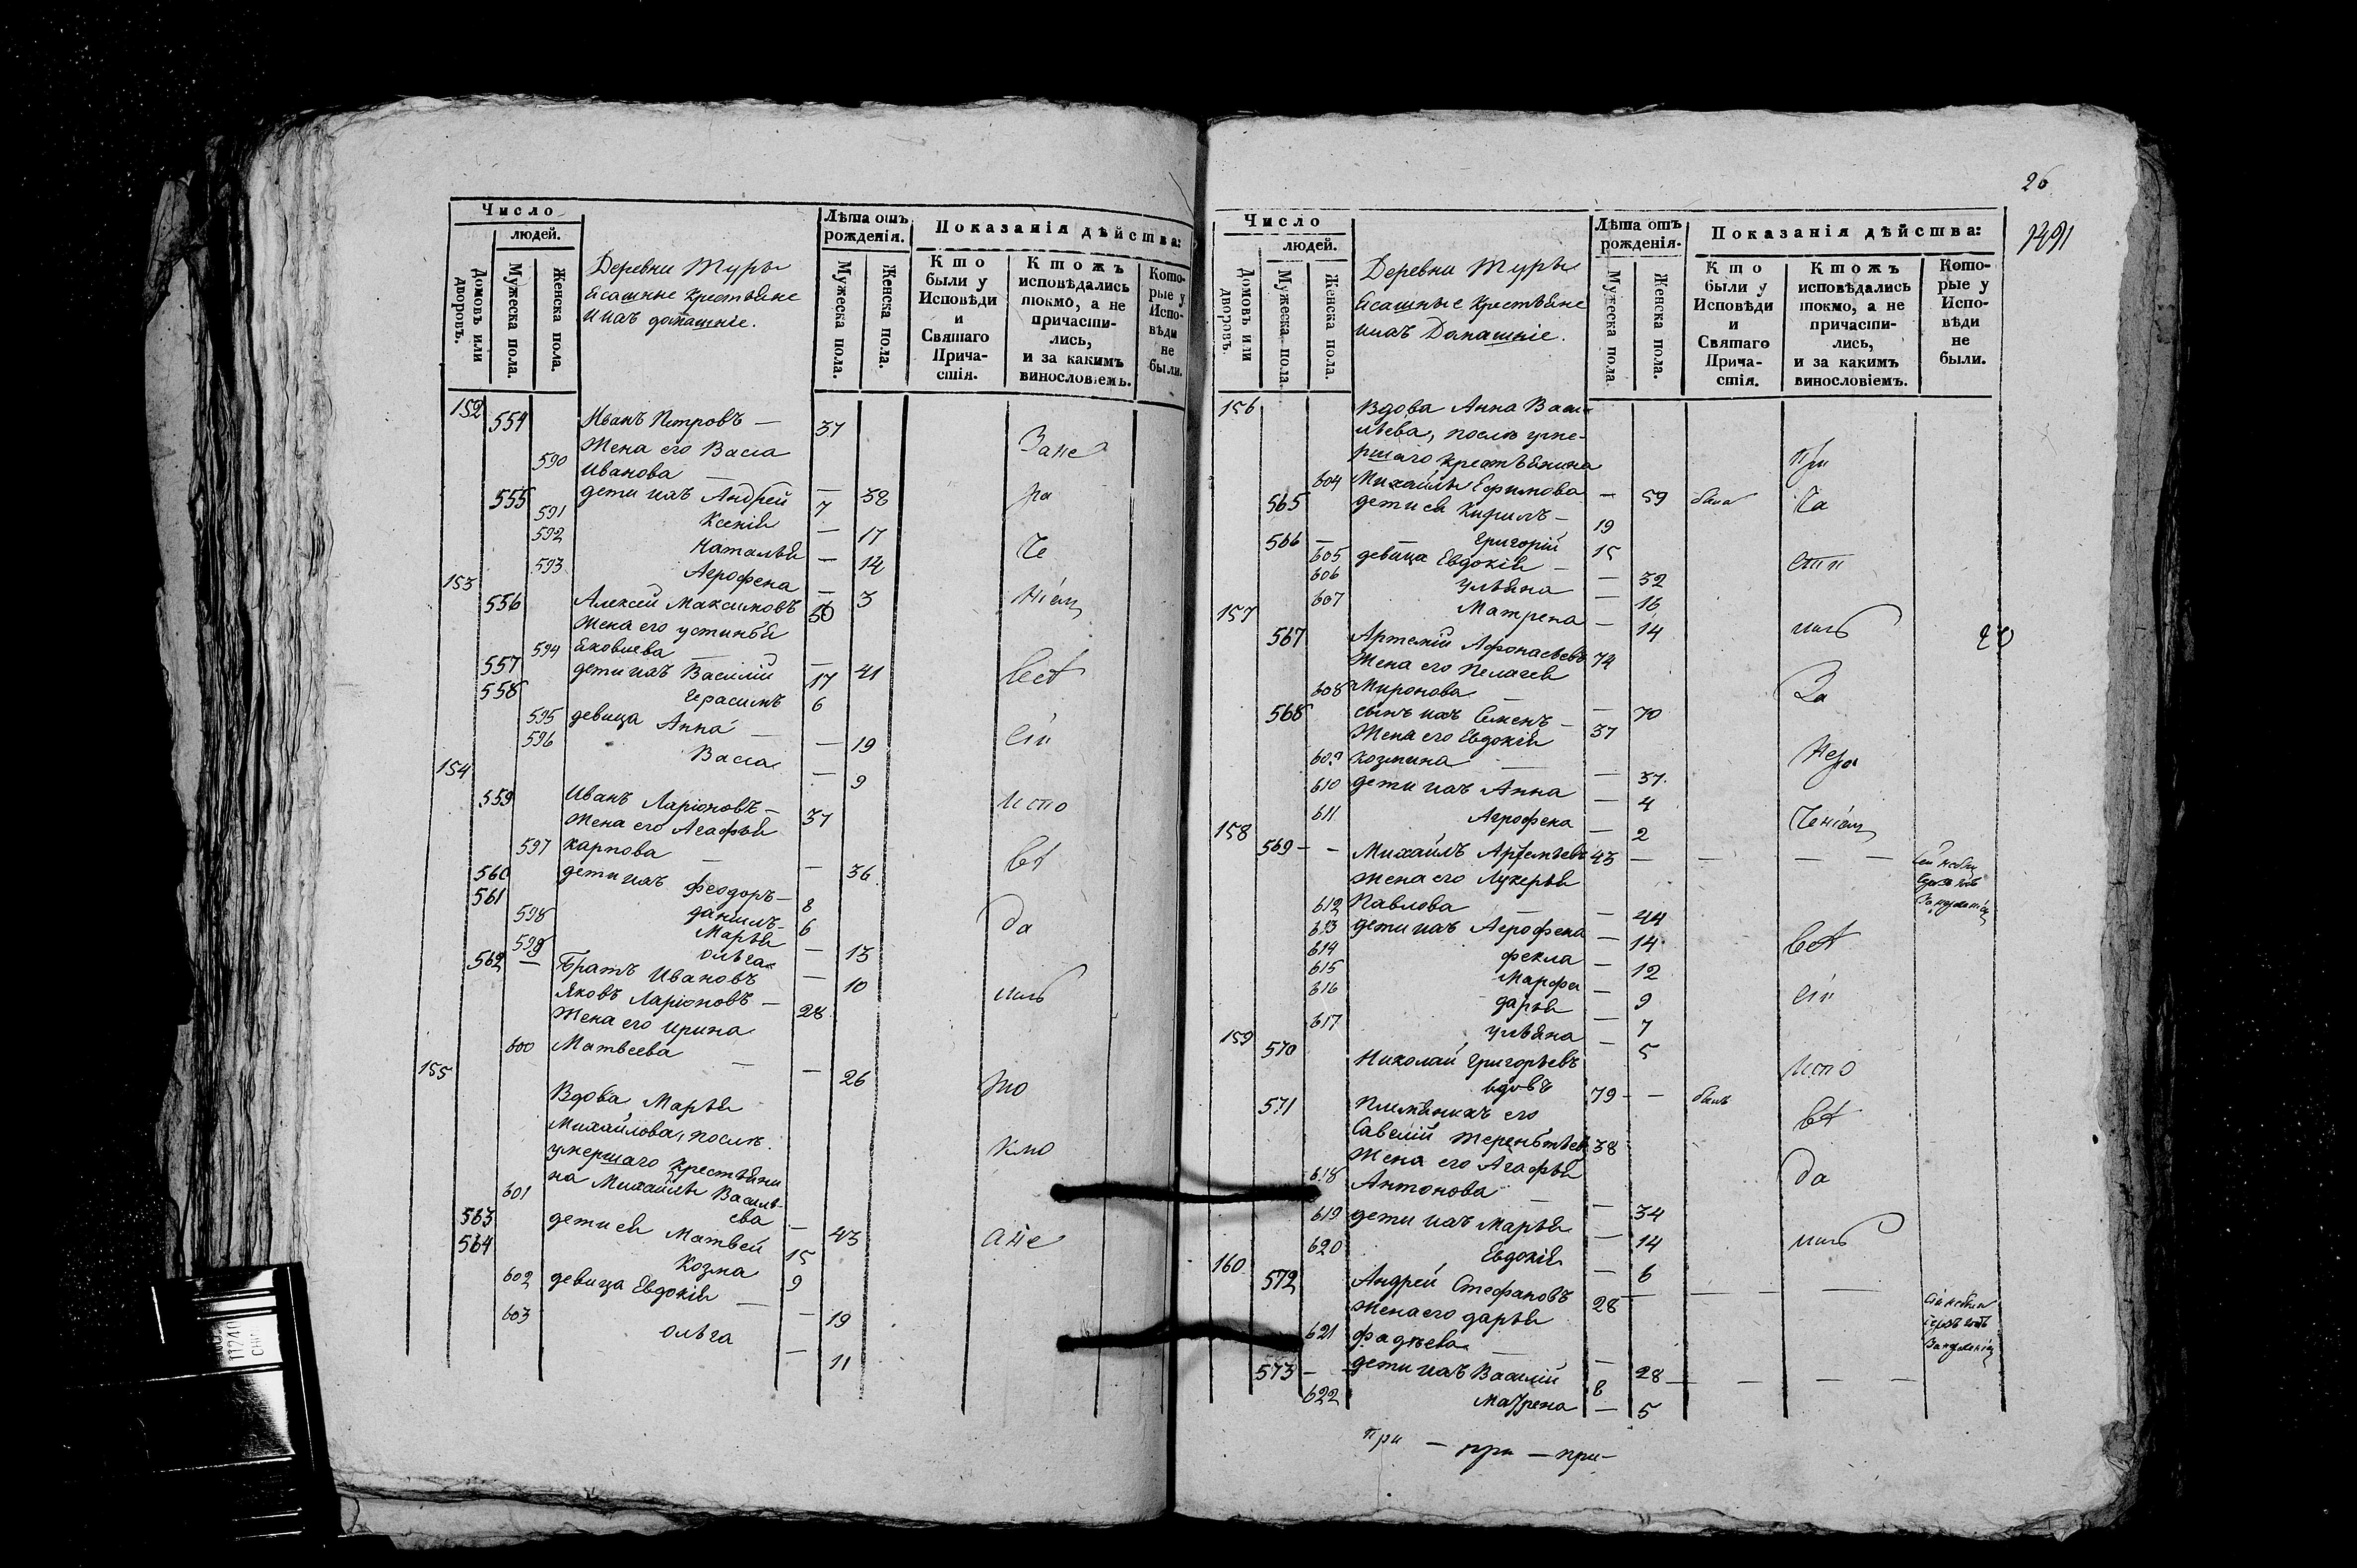 Число
людей.
Домовъ или дворовъ.
Мужеска пола.
Женска пола.
Деревни Туры
Ясашные крестьяне
и ихъ домашніе.
Лѣта отъ рожденія.
Мужеска пола.
Женска пола.
Показанія дѣйства:
Кто были у Исповѣди и Святаго Причастія.
Ктожъ исповѣдались токмо, а не причастились, и за какимъ винословіемъ.
Которые у Исповѣди не были.
152
554 Иванъ Петровъ — 37
Жена его Васса
590 Иванова — — 38
Зане
555 дети ихъ Андрей 7
ра
591 Ксенія — 17
592 Наталья — 14
че
593 Агрофена — 3
153
556 Алексей Максимовъ 50
ніем
Жена его Устинья
594 Яковлева — — 41
557 дети ихъ Василій 17
всѣ
558 Герасимъ 6
595 девица Анна — — 19
сіи
596 Васса — 9
154
559 Иванъ Ларіоновъ — 37
испо
Жена его Агафья
597 Карпова — — 36
вѣ
560 дети ихъ Феодоръ — 8
561 Даниилъ — 6
598 Марья — 13
да
599 Ольга — 10
562 — Братъ Ивановъ
Яковъ Ларіоновъ — 28
лись
Жена его Ирина
600 Матвеева — — 26
155
то
Вдова Марья
Михайлова, после
кмо
умершаго крестьяни
на Михайлы Василь-
601 ева — 43
563 дети ея Матвей 15
ане
564 Козма 9
602 девица Евдокія — — 19
603 Ольга — 11
26
1491
Число
людей.
Домовъ или дворовъ.
Мужеска пола.
Женска пола.
Деревни Туры
Ясашные крестьяне
ихъ Домашніе.
Лѣта отъ рожденія.
Мужеска пола.
Женска пола.
Показанія дѣйства:
Кто были у Исповѣди и Святаго Причастія.
Ктожъ исповѣдались токмо, а не причастились, и за какимъ винословіемъ.
Которые у Исповѣди не были.
156 Вдова Анна Васи-
льева, после уме-
ршаго крестьянина
при
604 Михайлы Ефимова — 59 была
565 дети ея Кирилъ — 19
ча
566 — — Григорій 15
605 девица Евдокія — — 32
сти
606 Ульяна — 16
607 Матрена — 14
157
567 Артемій Афонасьевъ 74
лись
Жена его Пелагея
608 Миронова — 70
За
568 сынъ ихъ Семенъ — 37
Жена его Евдокія
609 Козмина — — 37
Нера
610 дети ихъ Анна — 4
611 Агрофена — 2
ченіем
158
569 — — Михаилъ Артемьевъ 43 — — — —
Жена его Лукерья
612 Павлова — — 44
613 дети ихъ Агрофена — 14
всѣ
614 Фекла — 12
615 Марфа — 9
сіи
616 Дарья — 7
617 Ульяна — 5
159
570 Николай Григорьевъ
испо
вдовъ 79 — — былъ
571 Племянникъ его
вѣ
Савелій Терентьевъ 38
Жена его Агафья
618 Антонова — — 34
да
619 дети ихъ Марья — 14
620 Евдокія — 6
лись
160
572 Андрей Стефановъ 28 — — — —
Жена его Дарья
621 Фадѣева — — 28
573 — дети ихъ Василій 8 — — —
622 Матрена — 5
при — при — при —